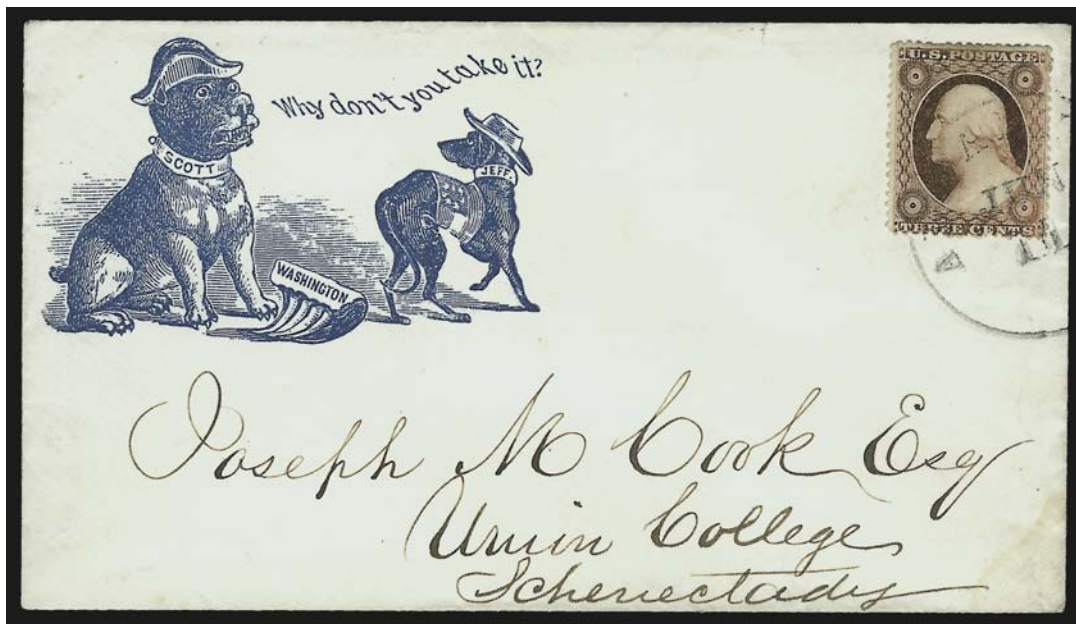 Why don't you take it?
SCOTT
JEFF.
WASHINGTON
U.S. POSTAGE
THREE CENTS
JUN
Joseph M Cook Esq
Union College
Schenectady